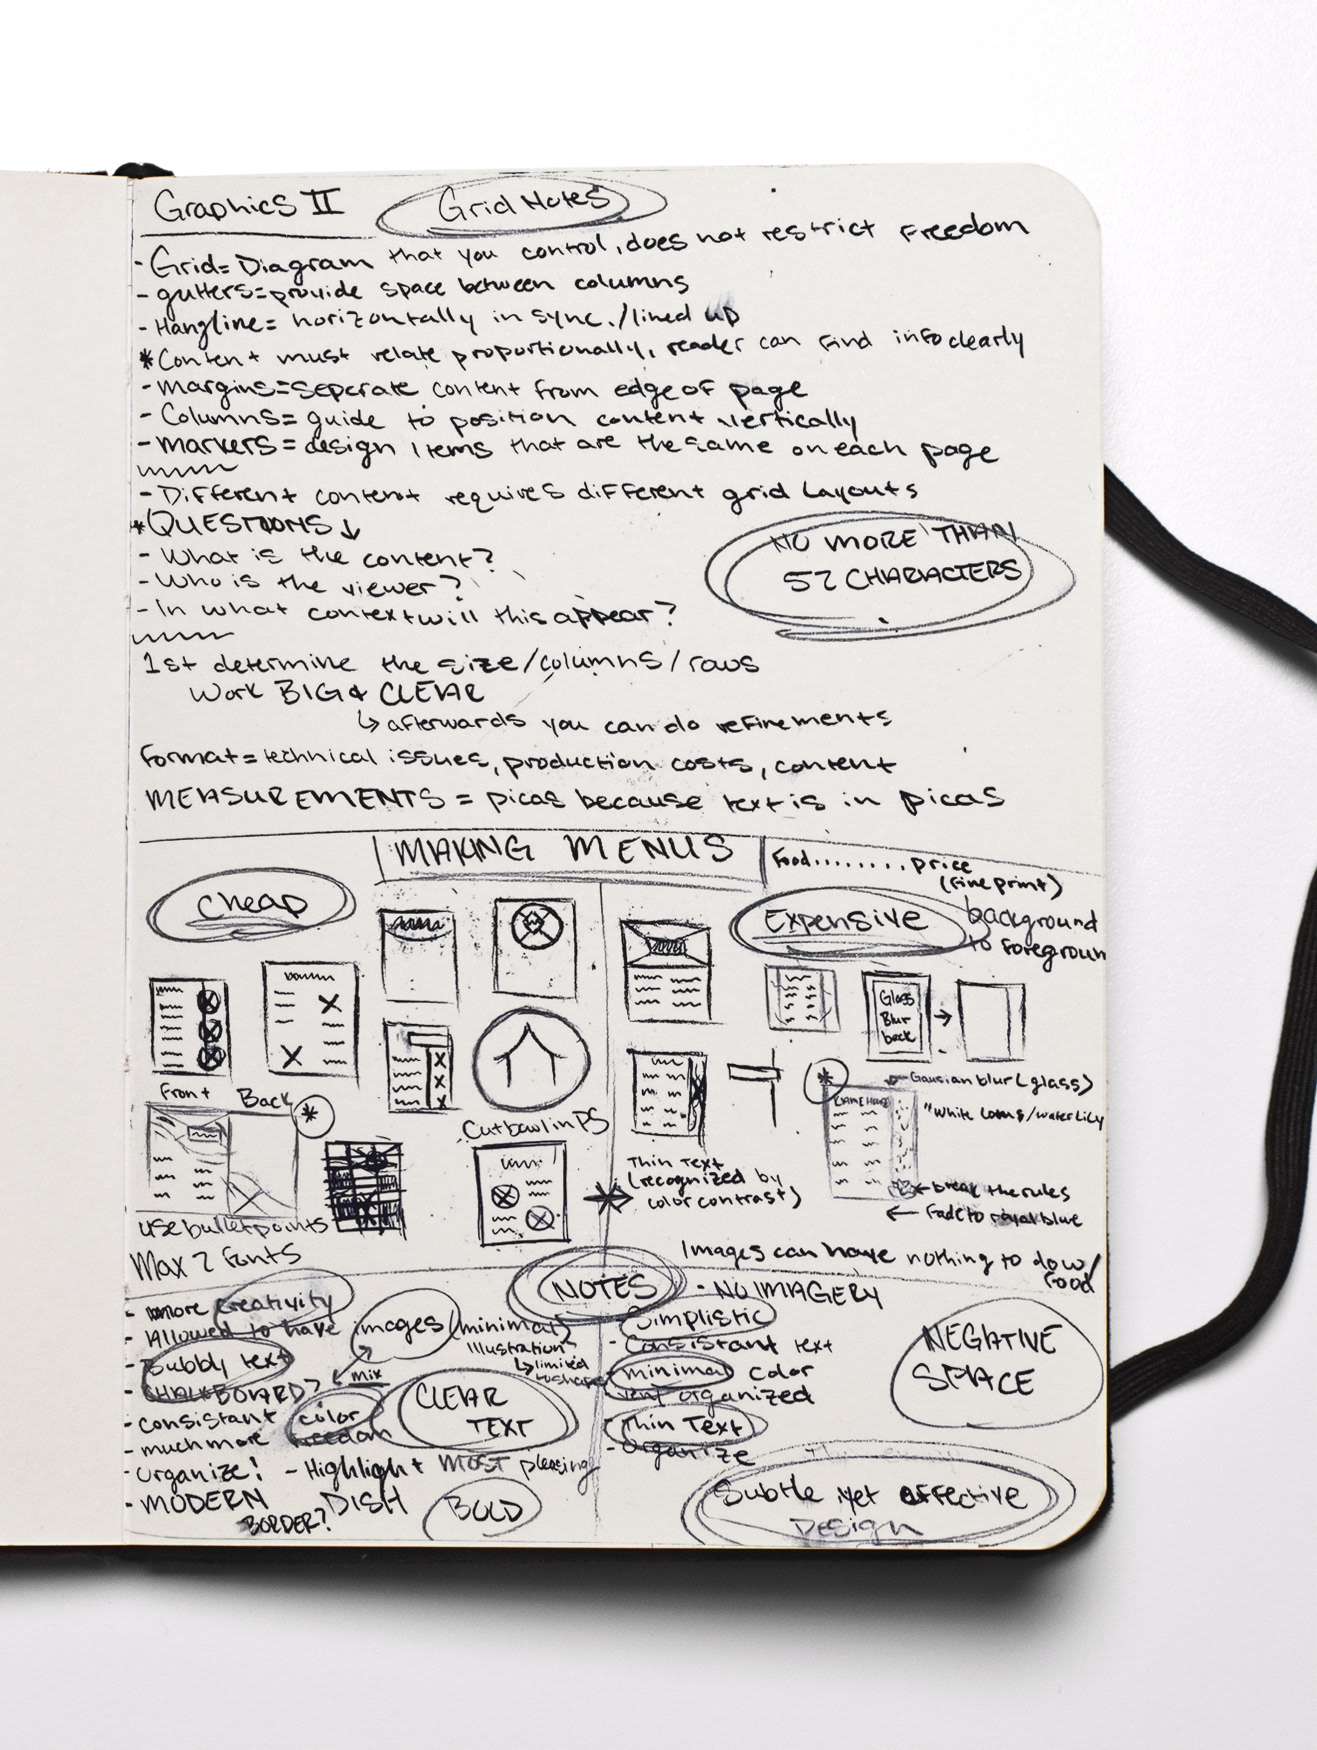 Graphics II
Grid Notes
- Grid = Diagram that you control, does not restrict freedom
- gutters = provide space between columns
- Hangline = horizontally in sync. / lined up
* Content must relate proportionally, reader can find info clearly
- margins = seperate content from edge of page
- Columns = guide to position content vertically
- markers = design items that are the same on each page
- Different content requires different grid layouts
* QUESTIONS ↓
- What is the content?
- Who is the viewer?
- In what context will this appear?
NO MORE THAN
52 CHARACTERS
1st determine the size / columns / rows
Work BIG & CLEAR
↳ afterwards you can do refinements
format = technical issues, production costs, content
MEASUREMENTS = picas because text is in picas
MAKING MENUS
Food........ price
(fine print)
Cheap
Expensive
background
to foreground
Glass
Blur
back
Front
Back
*
Cut bowl in PS
use bullet points
Max 2 fonts
Thin Text
(recognized by
color contrast)
*
← Gausian blur (glass)
← break the rules
← Fade to royal blue
Images can have nothing to do w/
food
NOTES
- more creativity
- Allowed to have images / minimal
Illustration
↳ limited
to shapes
- Bubbly text
mix
- CHALKBOARD?
- consistant
- much more color
freedom
CLEAR
TEXT
- organize! - Highlight MOST pleasing
DISH
- MODERN
BORDER?
BOLD
- NO IMAGERY
- Simplistic
- Consistant text
- minimal color
very organized
- Thin Text
- Organize
NEGATIVE
SPACE
Subtle yet effective
Design